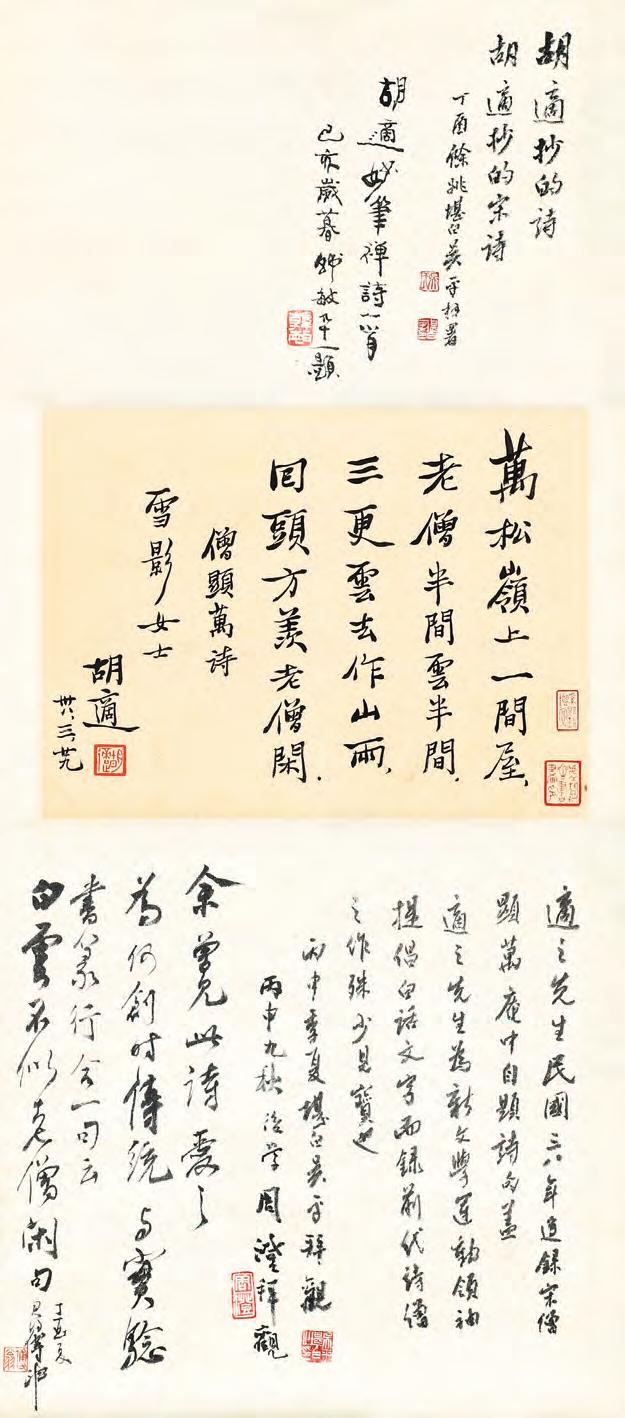 胡適抄的詩
胡適抄的宋詩
丁酉餘姚堪白吳平拜署
胡適妙筆禪詩一首
己亥歲暮韓敏九十一題
萬松嶺上一間屋、
老僧半間雲半間.
三更雲去作山雨、
回頭方羨老僧閑.
僧顯萬詩
雪影女士
胡適
卅八、三、廿九
適之先生民國三八年追錄宋僧
顯萬庵中自題詩句蓋
適之先生為新文學運動領袖
提倡白話文字而錄前代詩僧
之作殊少見寶也
丙申季夏堪白吳平拜觀
丙申九秋後學周澄拜觀
余曾見此詩愛之
為何創時傳統与實驗
書篆行合一句云
白雲不似老僧閑句
丁酉夏
傅申